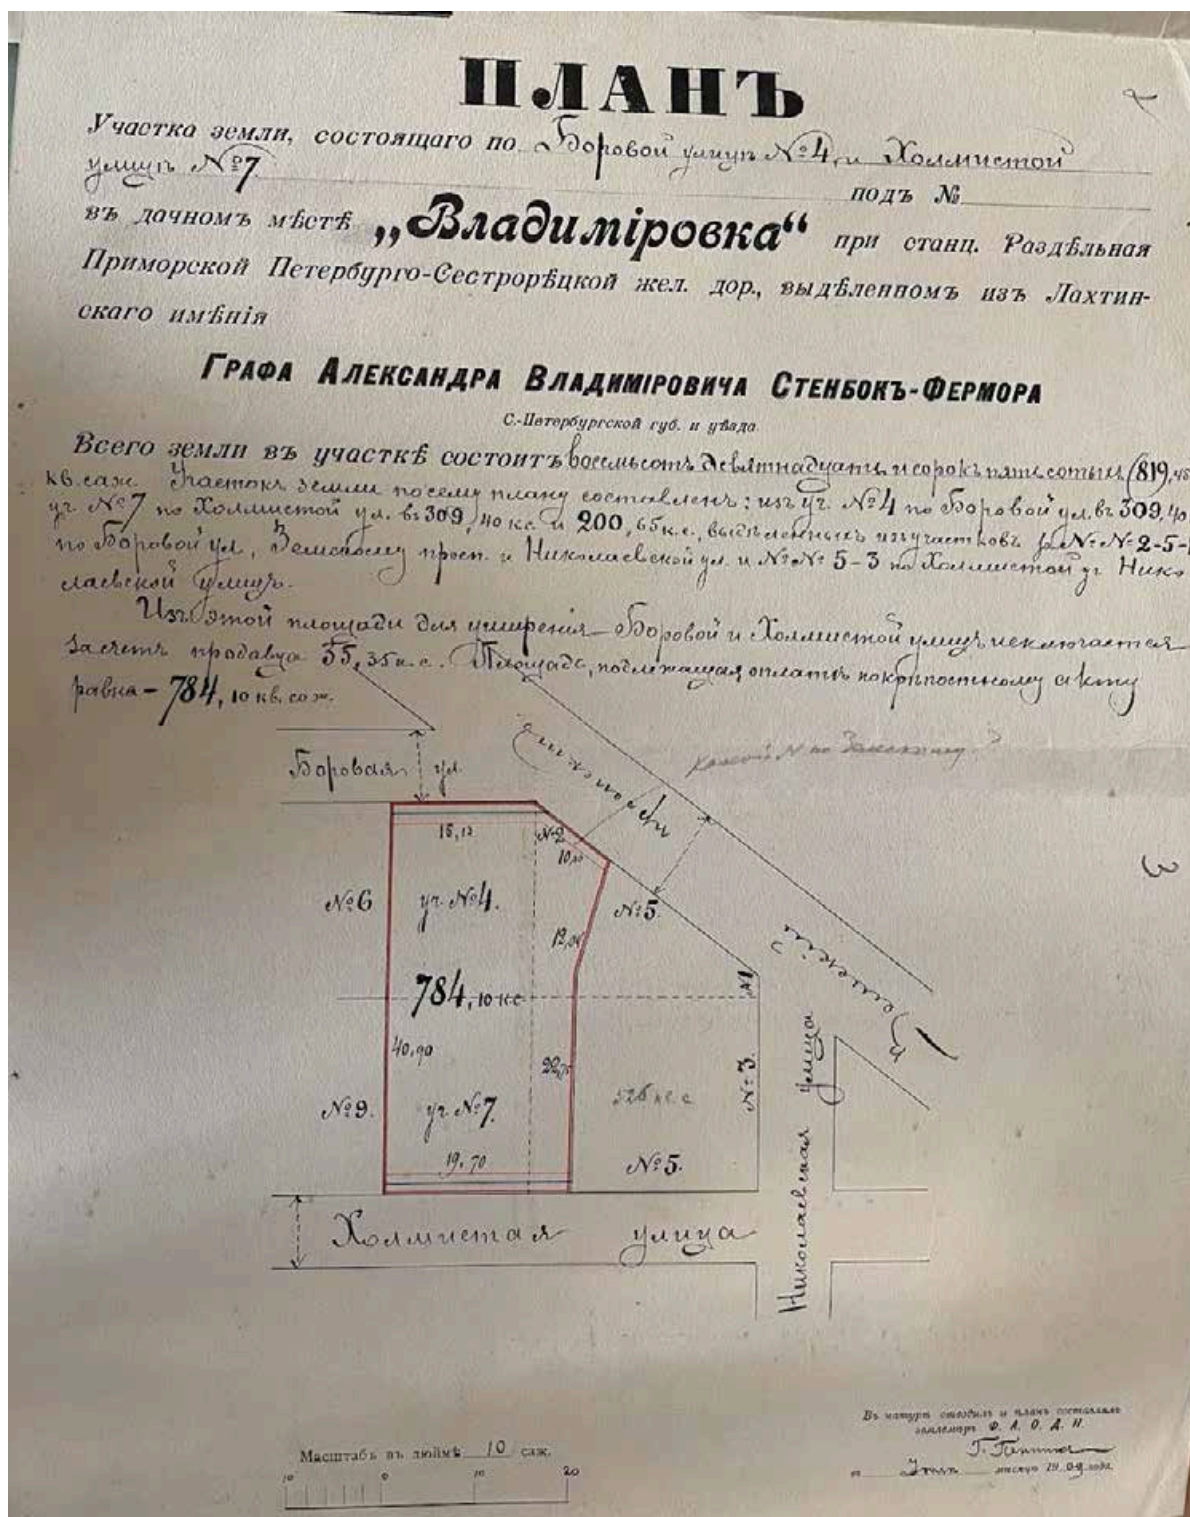 ПЛАНЪ
Участка земли, состоящаго по Боровой улицѣ №4, и Холмистой
улицѣ №7 подъ №
въ дачномъ мѣстѣ „Владиміровка“ при станц. Раздѣльная
Приморской Петербурго-Сестрорѣцкой жел. дор., выдѣленномъ изъ Лахтин-
скаго имѣнія
ГРАФА АЛЕКСАНДРА ВЛАДИМІРОВИЧА СТЕНБОКЪ-ФЕРМОРА
С.-Петербургской губ. и уѣзда.
Всего земли въ участкѣ состоитъ восемьсотъ девятнадцать и сорокъ пять сотыхъ (819,45
кв. саж. Участокъ земли по сему плану составленъ: изъ уч. №4 по Боровой ул. въ 309,40
уч. №7 по Холмистой ул. въ 309,40 к.с. и 200,65 к.с., выдѣленныхъ изъ участковъ №№ 2-5-1
по Боровой ул., Земскому просп. и Николаевской ул. и №№ 5-3 по Холмистой и Нико-
лаевской улицъ.
Изъ этой площади для уширенія Боровой и Холмистой улицъ исключается
за счетъ продавца 35,35 к.с. Площадь, подлежащая оплатѣ по крѣпостному акту
равна – 784,10 кв. саж.
Боровая ул.
Земскій проспектъ
какой № по Земскому ?
15,12
№2
10,
№6
уч. №4.
№5.
12,
3
784,10 к.с
№1
40,90
22,75
№3.
Николаевская улица
№9.
уч. №7.
526 к.с
19,70
№5.
Холмистая улица
Въ натурѣ отводилъ и планъ составлялъ
землемѣръ Ф. А. О. Д. Н.
Масштабъ въ дюймѣ 10 саж.
мѣсяца 1909 года.
10 0 10 20